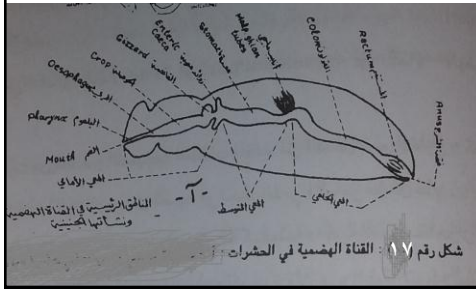 Pharynx البلعوم
Mouth الفم
Oesophagus المريء
Crop الحوصلة
Gizzard القانصة
Enteric Caeca
Stomach المعدة
Malpighian tubes
Colon القولون
Rectum المستقيم
Anus فتحة الشرج
المعي الأمامي
المعي المتوسط
المعي الخلفي
-أ-
المناطق الرئيسية في القناة الهضمية
ونشأتها الجنينية
شكل رقم (١٧) : القناة الهضمية في الحشرات :